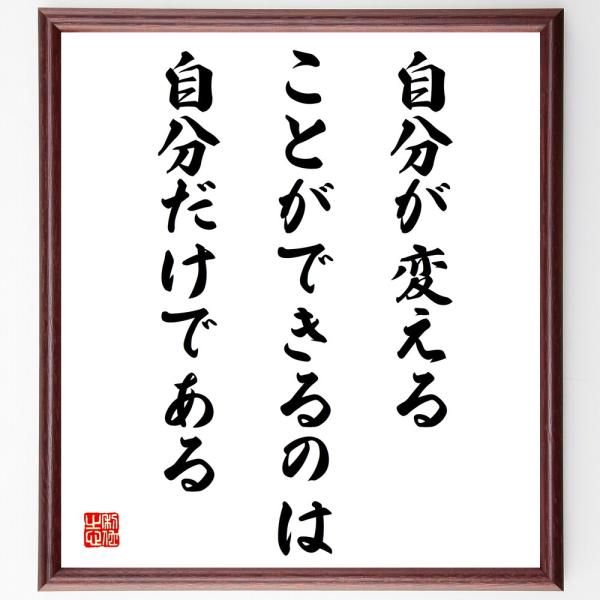 自分が変える
ことができるのは
自分だけである